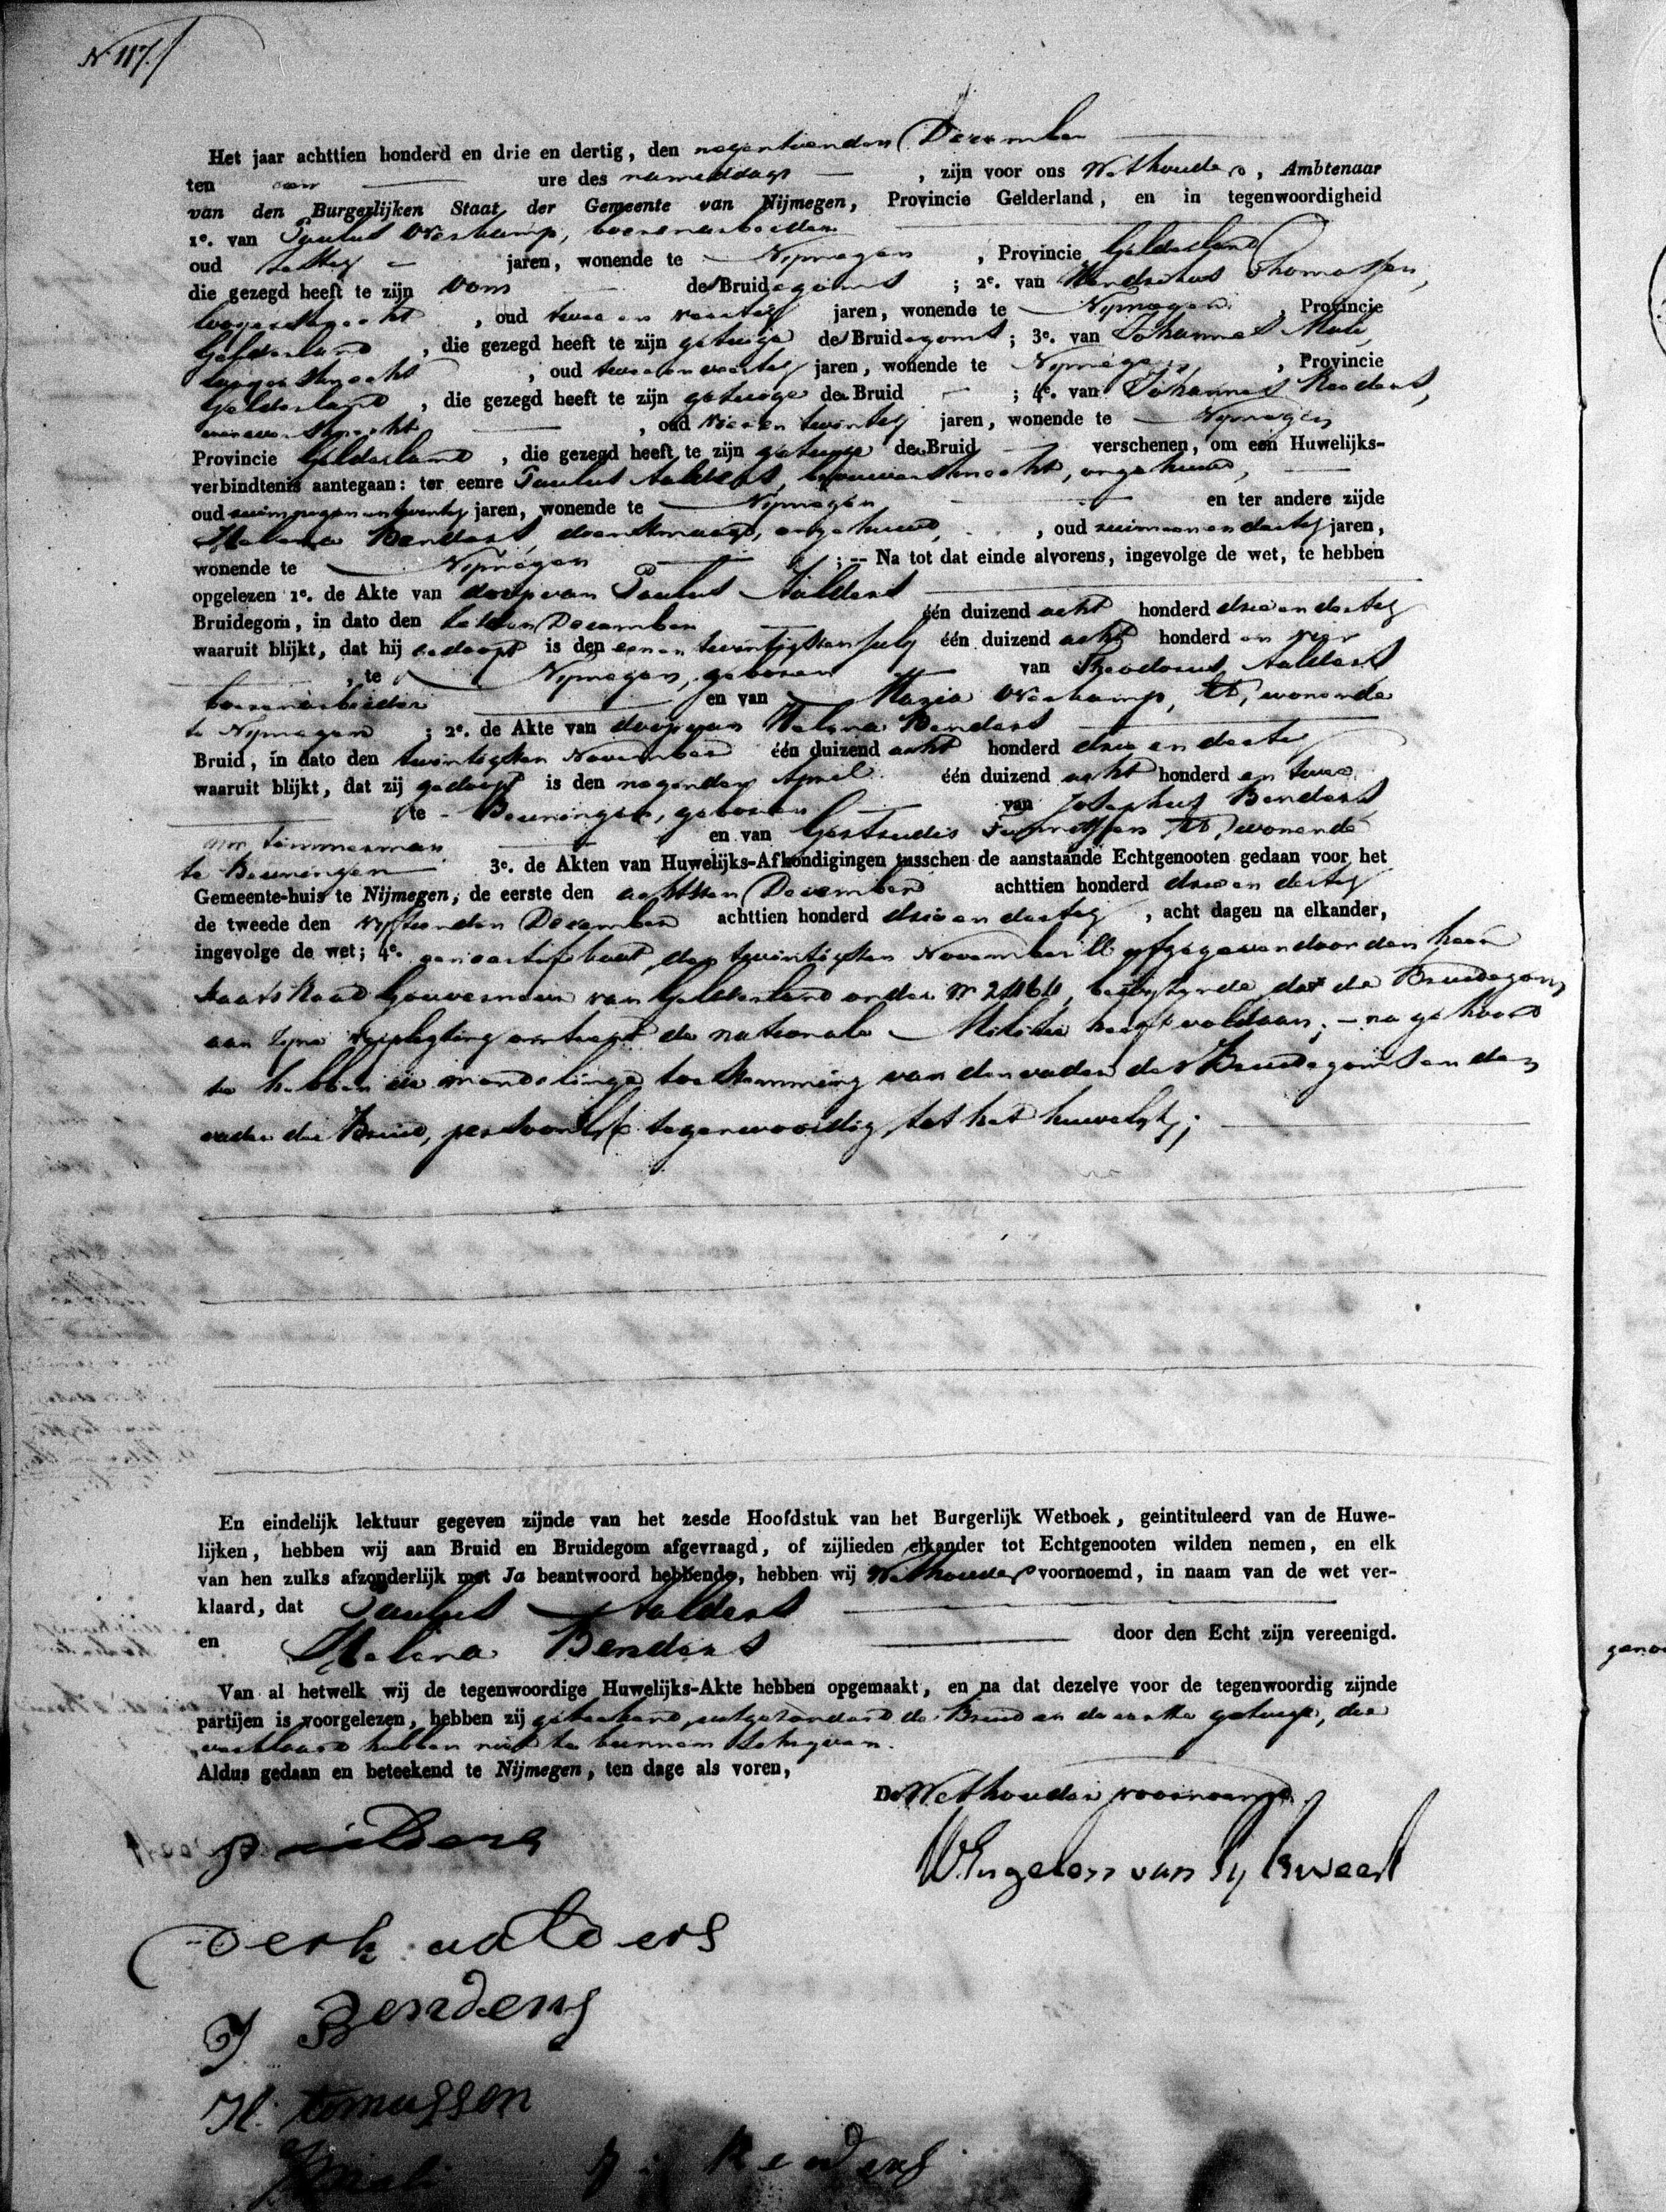 N. 117.
Het jaar achttien honderd en drie en dertig, den negentienden December
ten een ure des nameddags, zijn voor ons Wethouder, Ambtenaar
van den Burgerlijken Staat der Gemeente van Nijmegen, Provincie Gelderland, en in tegenwoordigheid
1e. van Paulus Overkamp, boerenarbeider
oud jaren, wonende te Nijmegen, Provincie Gelderland
die gezegd heeft te zijn Oom des Bruidegoms; 2e. van Hendrikus Thomassen,
, oud twee en veertig jaren, wonende te Nijmegen, Provincie
Gelderland, die gezegd heeft te zijn getuige des Bruidegoms; 3e. van Johannes Mali,
, oud twee en veertig jaren, wonende te Nijmegen, Provincie
Gelderland, die gezegd heeft te zijn getuige der Bruid; 4e. van Johannes Reeders,
, oud vier en twintig jaren, wonende te Nijmegen
Provincie Gelderland, die gezegd heeft te zijn getuige der Bruid verschenen, om een Huwelijks-
verbindtenis aantegaan: ter eenre Paulus Aalders, brouwersknecht, ongehuwd,
oud ruim negen en twintig jaren, wonende te Nijmegen en ter andere zijde
Helena Benders, dienstmaagd, ongehuwd, , oud ruim een en dertig jaren,
wonende te Nijmegen; -- Na tot dat einde alvorens, ingevolge de wet, te hebben
opgelezen 1e. de Akte van doop van Paulus Aalders
Bruidegom, in dato den December één duizend acht honderd drie en dertig
waaruit blijkt, dat hij gedoopt is den een en twintigsten July één duizend acht honderd en vier
, te Nijmegen, geboren van Theodorus Aalders
boerenarbeider en van Maria Overkamp, wonende
te Nijmegen; 2e. de Akte van doop van Helena Benders
Bruid, in dato den twintigsten November één duizend acht honderd drie en dertig
waaruit blijkt, dat zij gedoopt is den negenden April één duizend acht honderd en twee
te Beuningen, geboren van Josephus Benders
timmerman en van Gertrudis wonende
te Beuningen 3e. de Akten van Huwelijks-Afkondigingen tusschen de aanstaande Echtgenooten gedaan voor het
Gemeente-huis te Nijmegen, de eerste den achtsten December achttien honderd drie en dertig
de tweede den vyftienden December achttien honderd drie en dertig, acht dagen na elkander,
ingevolge de wet; 4e. een certificaat, den twintigsten November ll. afgegeven door den heer
Staatsraad Gouverneur van Gelderland onder No. 21464, dat de Bruidegom
aan zyne verpligting omtrent de nationale Militie heeft voldaan; - na gehoord
te hebben de mondelinge toestemming van den vader des Bruidegoms en den
vader der Bruid, persoonlyk tegenwoordig, tot het huwelyk;
En eindelijk lektuur gegeven zijnde van het zesde Hoofdstuk van het Burgerlijk Wetboek, geintituleerd van de Huwe-
lijken, hebben wij aan Bruid en Bruidegom afgevraagd, of zijlieden elkander tot Echtgenooten wilden nemen, en elk
van hen zulks afzonderlijk met Ja beantwoord hebbende, hebben wij Wethouder voornoemd, in naam van de wet ver-
klaard, dat Paulus Aalders
en Helena Benders door den Echt zijn vereenigd.
Van al hetwelk wij de tegenwoordige Huwelijks-Akte hebben opgemaakt, en na dat dezelve voor de tegenwoordig zijnde
partijen is voorgelezen, hebben zij geteekend, uitgezonderd de Bruid en de eerste getuige, die
verklaard hebben niet te kunnen schryven.
Aldus gedaan en beteekend te Nijmegen, ten dage als voren,
De Wethouder voornoemd
p aalders
W. Engelen van Pylsweert
Derk aalders
J Benders
H. tomassen
J Mali J. Reeders